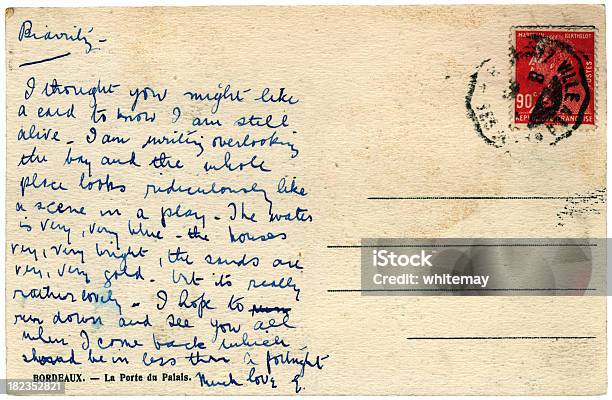 Biarritz -
I thought you might like
a card to know I am still
alive - I am writing overlooking
the bay and the whole
place looks ridiculously like
a scene in a play - The water
is very, very blue - the houses
very, very bright, the sands are
very, very gold - but its really
rather lovely - I hope to
run down and see you all
when I come back which
should be in less than a fortnight
Much love E.
BORDEAUX. — La Porte du Palais.
MARCELIN BERTHELOT
POSTES
90c
REPUBLIQUE FRANCAISE
VILLE
iStock
Credit: whitemay
182352821